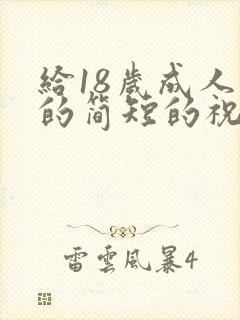 給18歲成人
的简短的祝
雷雲風暴4